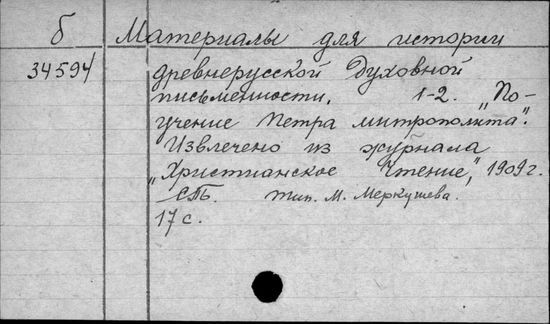 Б Материалы для истории
34594 древнерусской духовной
письменности. 1-2. „По-
учение Петра митрополита".
Извлечено из журнала
„Христианское Чтение", 1909 г.
СПБ. Тип. М. Меркушева.
17 с.